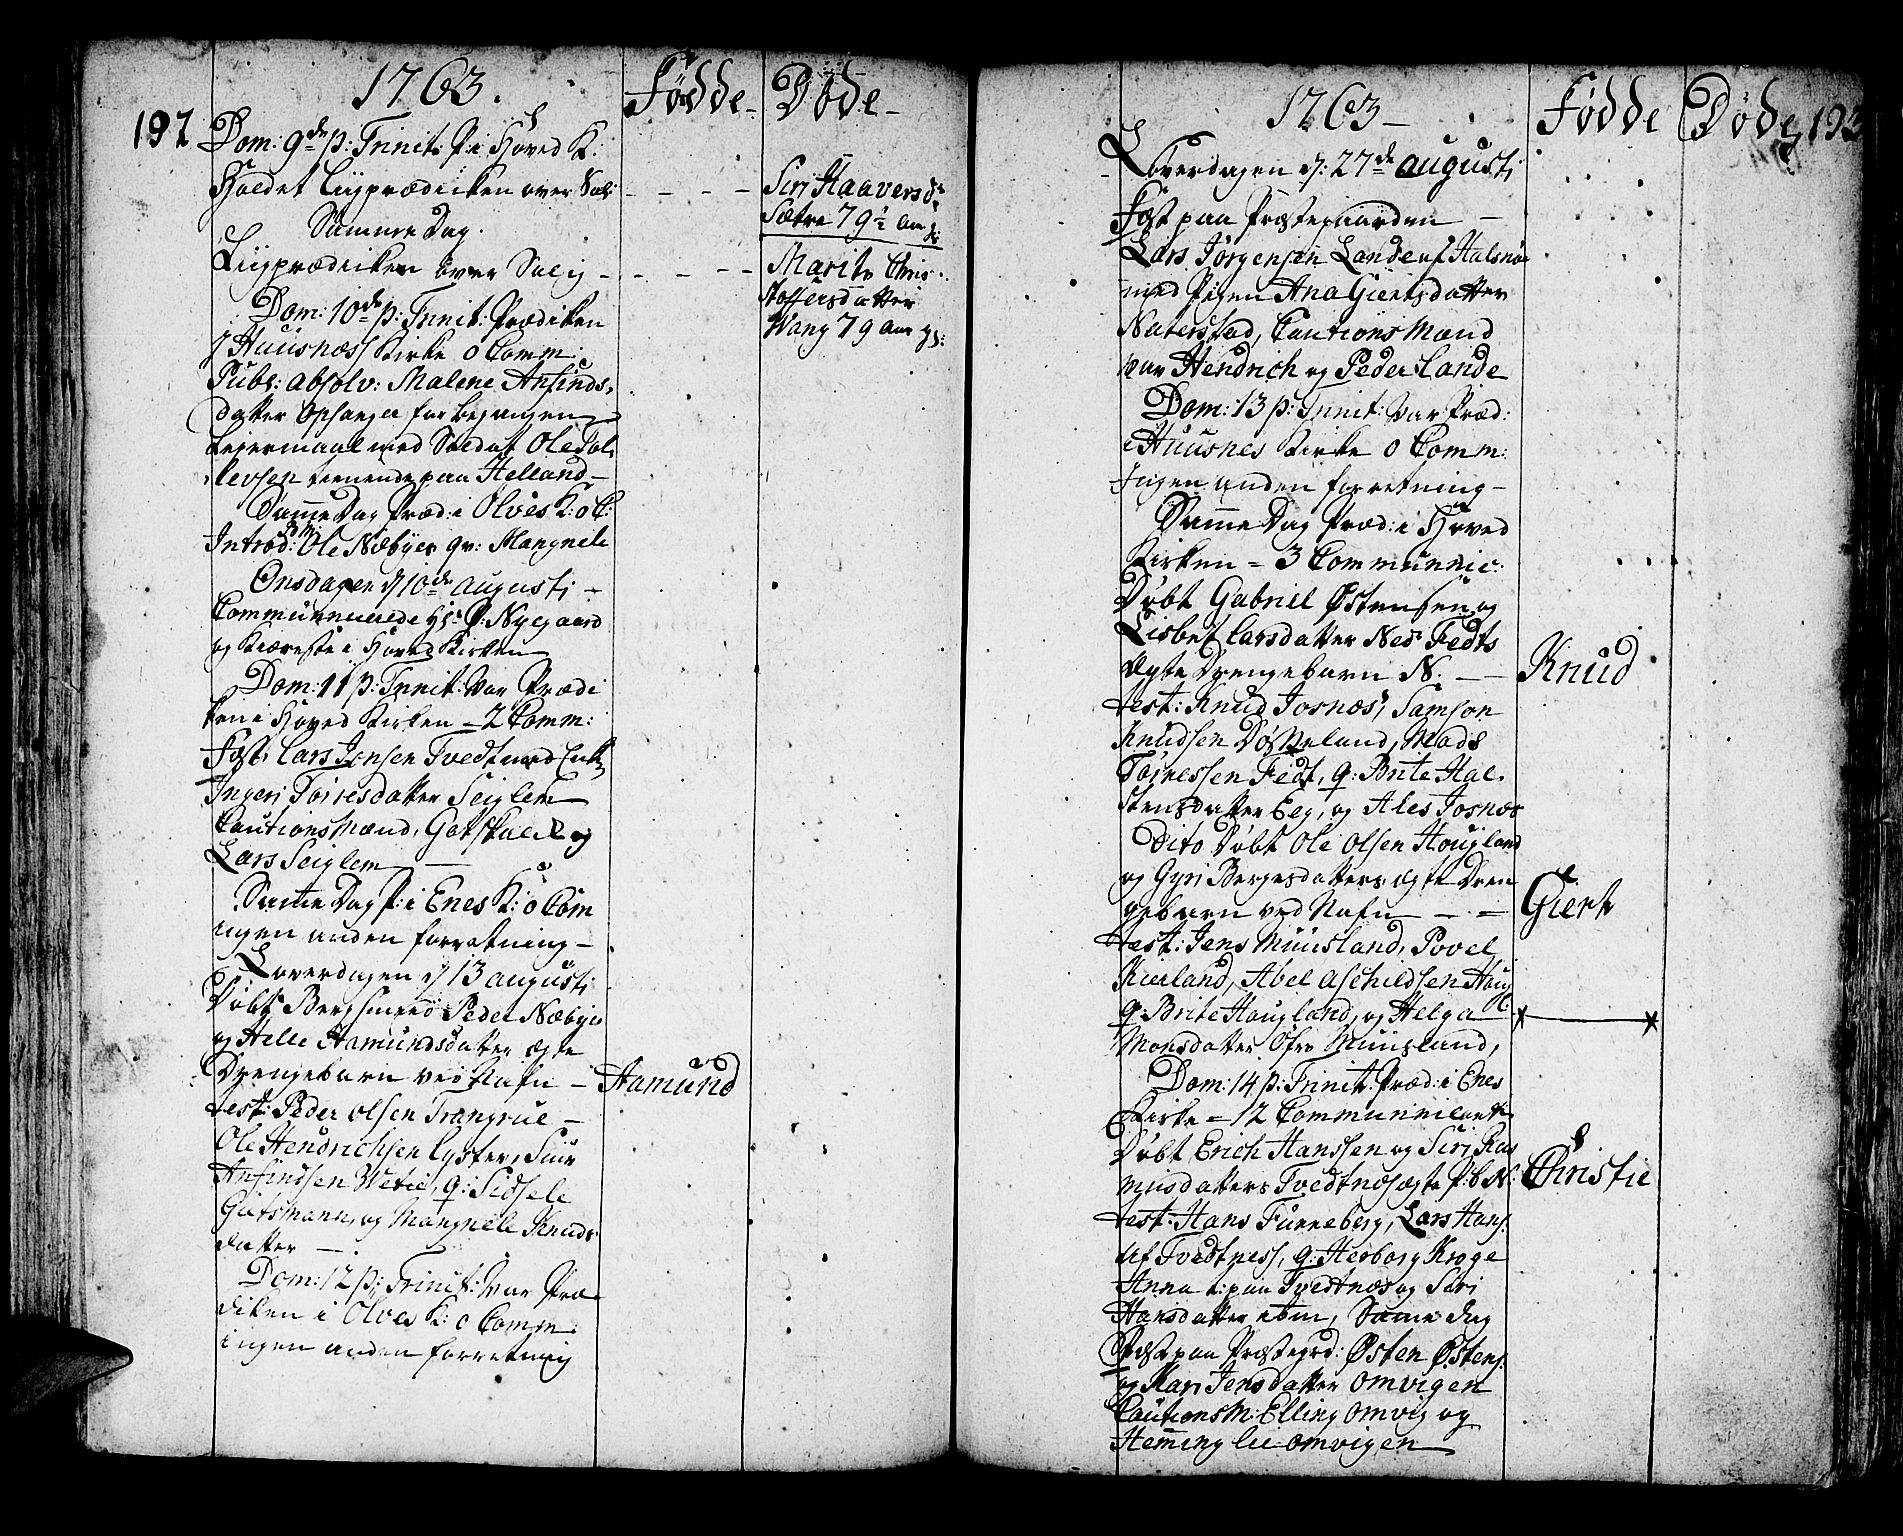 1763.
Fødde
Døde
192
Dom: 9de p: Trinit: P: i Hoved K:
Holdet Liigprædicken over Sal:
Siri Haavers Dr
Sætre 79½ aar gl:
Samme Dag.
Liigprædicken over Salig
Marite Chri-
stoffersdatter
Wang 79 aar gl:
Dom: 10de p: Trinit: Prædicken
i Huusnæss Kirke 0 Comm:
Publ: absolv: Malene Anfinds-
datter Opsanger for begangen
Leiermaal med Soldat Ole Tol-
levsen tienende paa Helland
Samme Dag Præd: i Olves K: 0 C:
Introd: Ole Næbyes qv: Mangnele
Onsdagen d 10de augusti
Communicerede Hr: Ø: Nyegaard
og Kiæreste i Hoved Kirken
Dom: 11 p: Trinit: var Prædi
ken i Hoved Kirken - 2 Comm:
Fæst, Lars Jensen Tvedt med Enk:
Ingeri Toiresdatter Seiglem
Cautions Mænd, Gotskalck og
Lars Seiglem
Samme Dag P: i Enes K: 0 Com
ingen anden forretning
Løverdagen d 13 augusti
Døbt Bergsmend Peder Næbyes
og Helle Aamundsdatter ægte
Drengebarn ved Nafn - Aamund
test: Peder Olsen Trangrue
Ole Hendrichsen Lyster, Siur
Anfindsen Wetie, q: Sidsele
Giitsmann, og Mangnele Knuds-
datter
Dom: 12 p: Trinit: var Præ
diken i Olves K: 0 Comm
ingen anden forretning
1763
Fødde
Døde
193
Løverdagen d: 27de augusti
Fæst paa Præstegaarden
Lars Jørgensen Lande af Halsnøe
med Pigen Ana Giertsdatter
Naterstad, Cautions Mænd
var Hendrich og Peder Lande
Dom: 13 p: Trinit: var Præd:
i Huusnes Kirke 0 Comm:
Ingen anden forretning
Samme Dag Præd: i Hoved
Kirken = 3 Communic:
Døbt Gabriel Østensen og
Lisbet Larsdatter Ned: Fedts
ægte Drengebarn N. - Knud
test: Knud Josnæs, Samson
Knudsen Døsseland, Mads
Toiressen Fedt, q: Brite Hal-
stensdatter Eeg, og Ales Josnæs
Dito Døbt Ole Olsen Hougland
og Gyri Bergesdatters ægte Dren
gebarn ved Nafn - Giert
test: Jens Muusland, Povel
Kierland, Abel Aschildsen Hougl
q: Brite Hougland, og Helga
Monsdatter Øfre Muusland,
Dom: 14 p: Trinit. Præd: i Enes
Kirke = 12 Communicant:
Døbt Erich Hanssen og Siri Ras
musdatters Tvedtnes ægte P: b: N: Christie
test: Hans Furreberg, Lars Hans:
af Tvedtness, q: Herborg Kroge
Anna t: paa Tvedtnæs og Siri
Hansdatter ibm, Samme dag
Fæst paa Præstegrd: Østen Østens:
og Kari Jensdatter Omvigen
Cautions M: Elling Omvig og
Hemming lie Omvigen